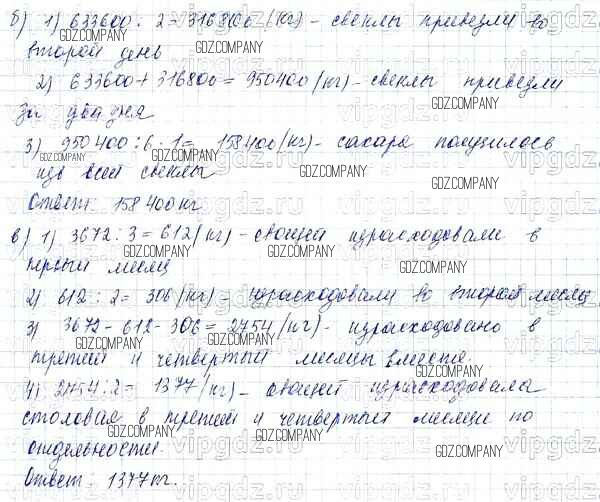 б) 1) 633600 : 2 = 316800 (кг) - свеклы привезли во
второй день
2) 633600 + 316800 = 950400 (кг) - свеклы привезли
за два дня
3) 950400 : 6 · 1 = 158400 (кг) - сахара получилось
из всей свеклы
Ответ: 158400 кг
в) 1) 3672 : 3 = 612 (кг) - овощей израсходовали в
первый месяц
2) 612 : 2 = 306 (кг) - израсходовали во второй месяц
3) 3672 - 612 - 306 = 2754 (кг) - израсходовано в
третий и четвертый месяцы вместе.
4) 2754 : 2 = 1377 (кг) - овощей израсходовала
столовая в третий и четвертый месяцы по
отдельности
Ответ: 1377 кг.
GDZ.COMPANY
vipgdz.ru